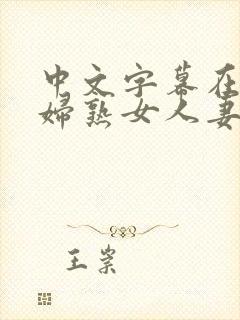 中文字幕在
婦熟女人妻
王崇